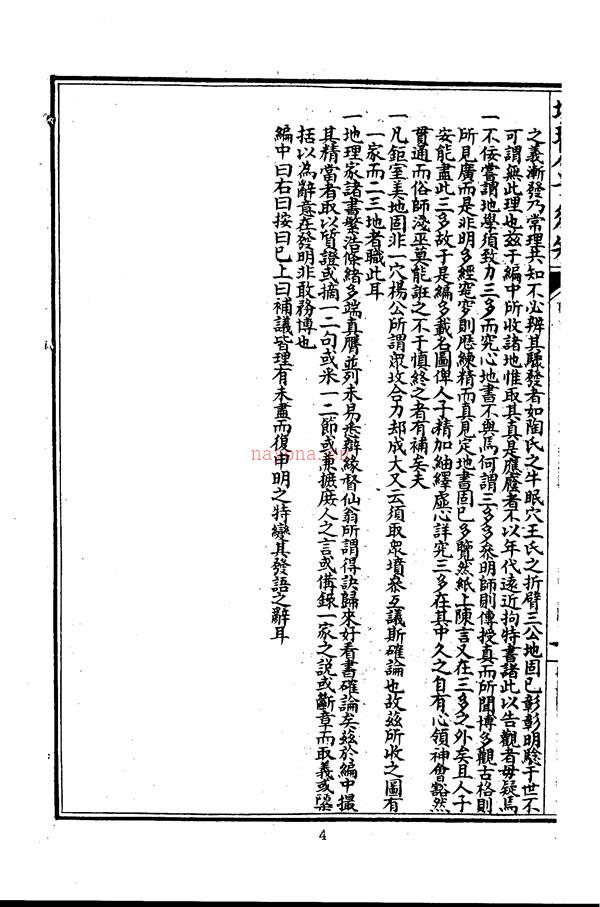 之義漸發乃常理共知不必辨其驟發者如陶氏之牛眠穴王氏之折臂三公地固已彰彰明驗于世不
可謂無此理也玆于編中所收諸地惟取其真是應塵者不以年代遠近拘特書諸此以告觀者毋疑焉
一不佞嘗謂地學須致力三多而究心地書不與焉何謂三多多叅明師則傳授真而所聞博多觀古格則
所見廣而是非明多經窀穸則歷練精而真見定地書固已多覽然紙上陳言又在三多之外矣且人子
安能盡此三多故于是編多載名圖俾人子精加紬繹虛心詳究三多在其中久之自有心領神會豁然
貫通而俗師淺巫莫能誑之不于慎終之者有補矣夫
一凡鉅室美地固非一穴楊公所謂眾坟合力却成大又云須取眾墳叅互議斯確論也故玆所收之圖有
一家而二三地者職此耳
一地理家諸書繁浩條緒多端真贋並列未易悉辯緣督仙翁所謂得訣歸來好看書確論矣玆於編中撮
其精當者取以質證或摘一二句或采一二節或兼摭庾人之言或備錄一家之說或斷章而取義或櫽
括以為辭意在發明非敢務博也
編中曰右曰按曰已上曰補議皆理有未盡而復申明之特變其發語之辭耳
nayona.cn
4